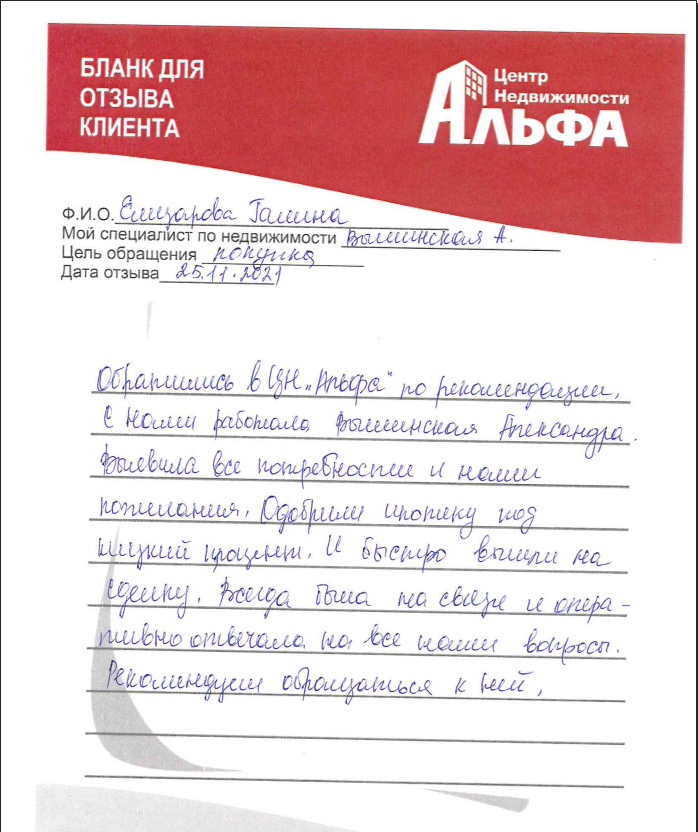 БЛАНК ДЛЯ
ОТЗЫВА
КЛИЕНТА
Центр
Недвижимости
АЛЬФА
Ф.И.О. Елизарова Галина
Мой специалист по недвижимости Вышинская А.
Цель обращения покупка
Дата отзыва 25.11.2021
Обратились в ЦН „Альфа" по рекомендации.
С нами работала Вышинская Александра.
Выявила все потребности и наши
пожелания. Одобрили ипотеку под
низкий процент. И быстро вышли на
сделку. Всегда была на связи и опера-
тивно отвечала на все наши вопросы.
Рекомендуем обращаться к ней.